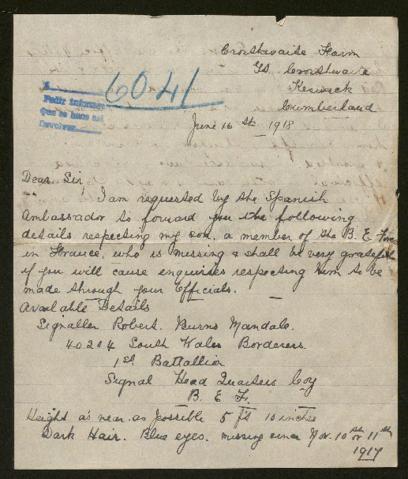 Crosthwaite Farm
Gt. Crosthwaite
Keswick
Cumberland
6041
June 16th 1918
Dear Sir
I am requested by the Spanish
Ambassador to forward you the following
details respecting my son, a member of the B. E. Force
in France, who is missing & shall be very grateful
if you will cause enquiries respecting him to be
made through your Officials.
Available Details
Signaller Robert. Burns Mandale.
40204 South Wales Borderers.
1st Battallion
Signal Head Quarters Coy
B. E. F.
Height as near as possible 5 ft 10 inches
Dark Hair. Blue eyes. missing since Nov. 10th or 11th
1917